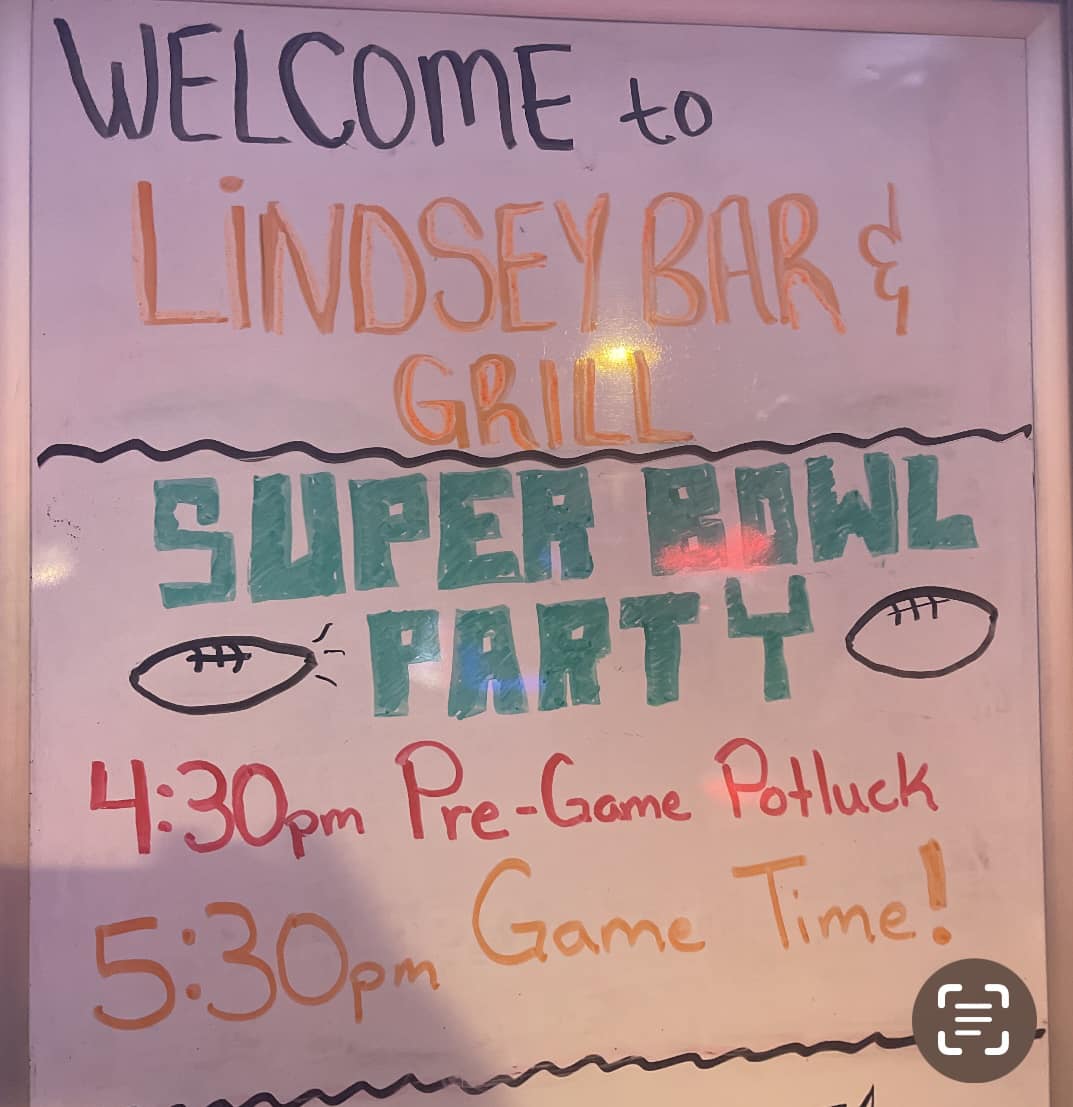 WELCOME to
LiNDSEY BAR &
GRILL
SUPER BOWL
PARTY
4:30pm Pre-Game Potluck
5:30pm Game Time!